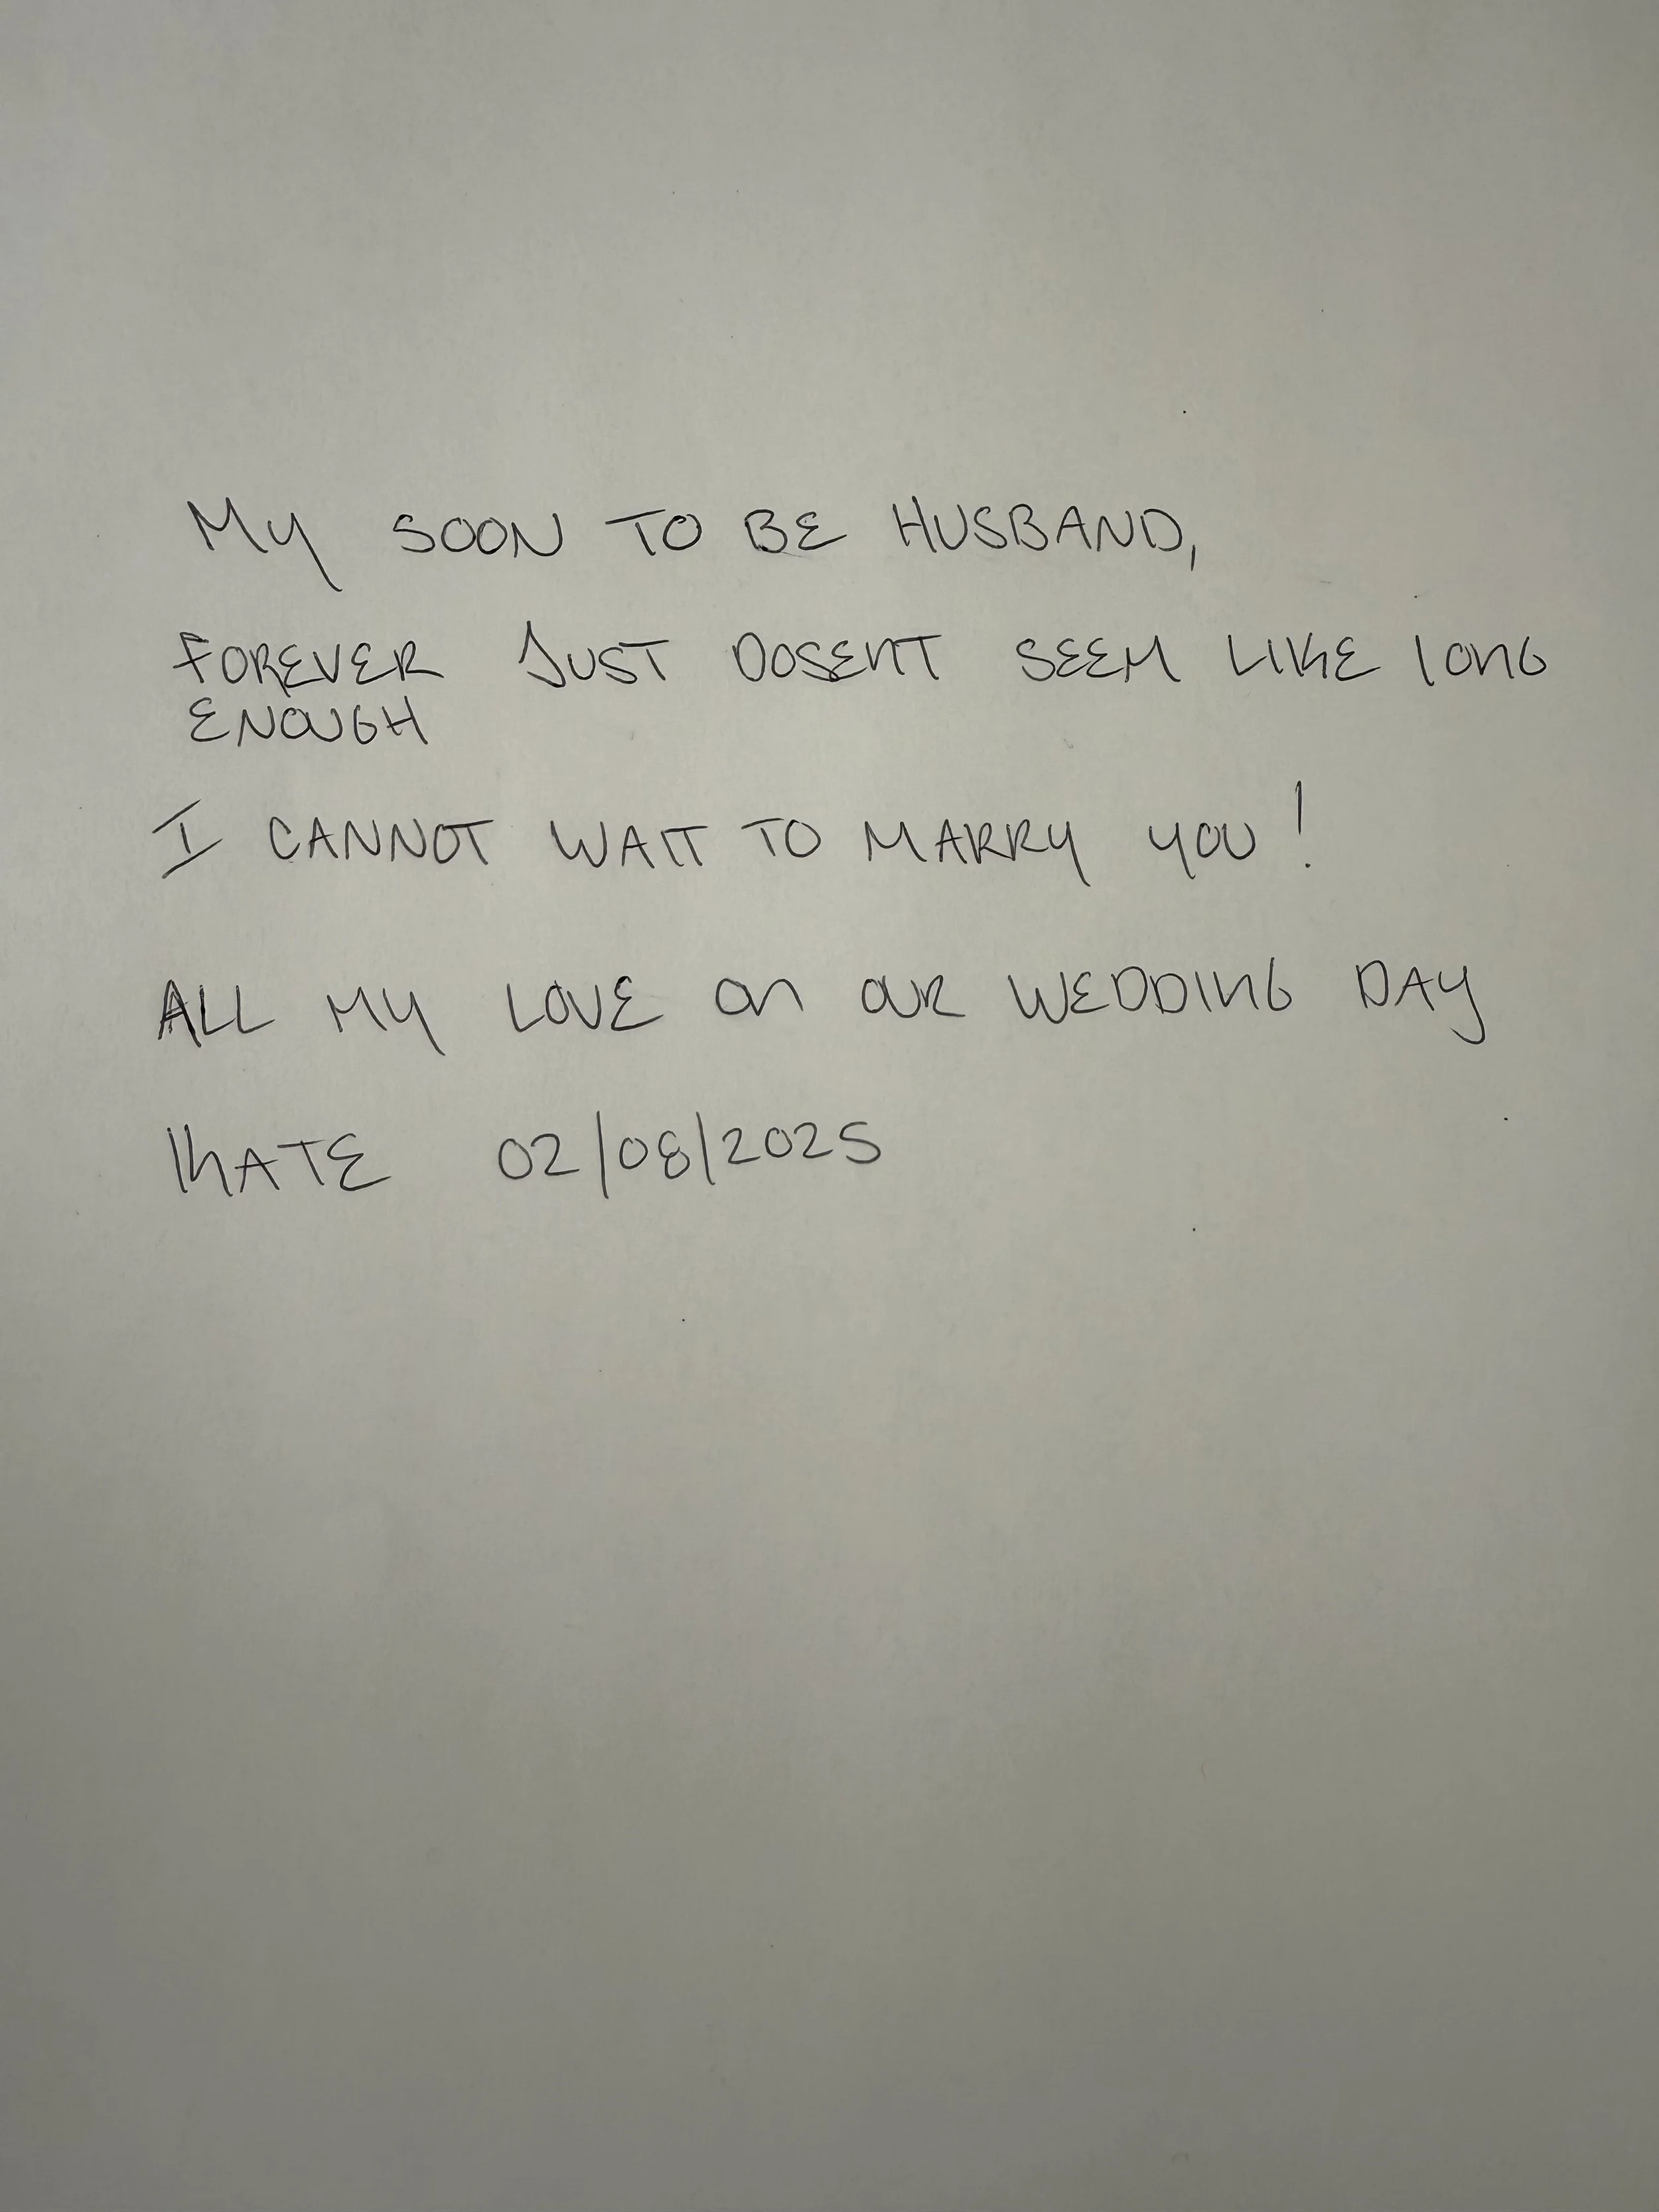 MY SOON TO BE HUSBAND,
FOREVER JUST DOSENT SEEM LIKE LONG
ENOUGH
I CANNOT WAIT TO MARRY YOU!
ALL MY LOVE ON OUR WEDDING DAY
KATE 02/08/2025